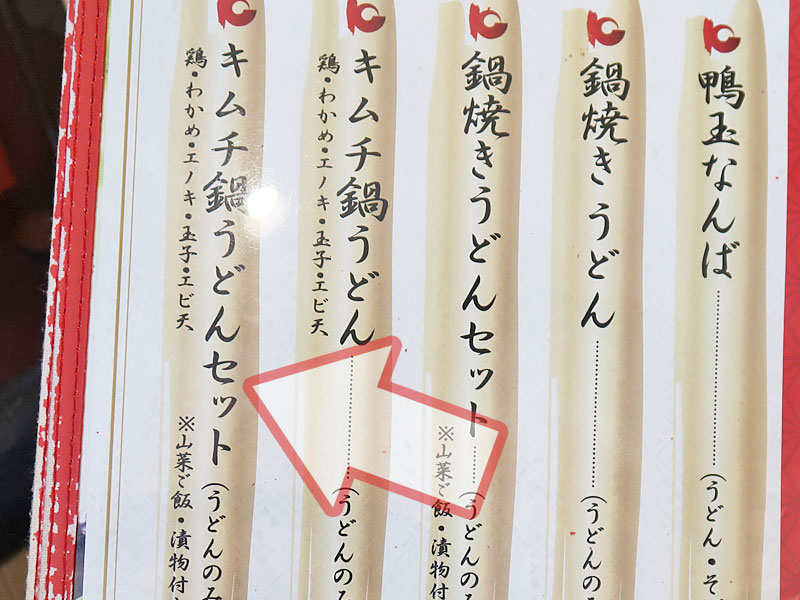 鴨玉なんば………(うどん・そ
鍋焼きうどん………(うどんの
鍋焼きうどんセット……(うどんのみ
※山菜ご飯・漬物付
キムチ鍋うどん………(うどんのみ
鶏・わかめ・エノキ・玉子・エビ天
キムチ鍋うどんセット(うどんのみ
鶏・わかめ・エノキ・玉子・エビ天
※山菜ご飯・漬物付